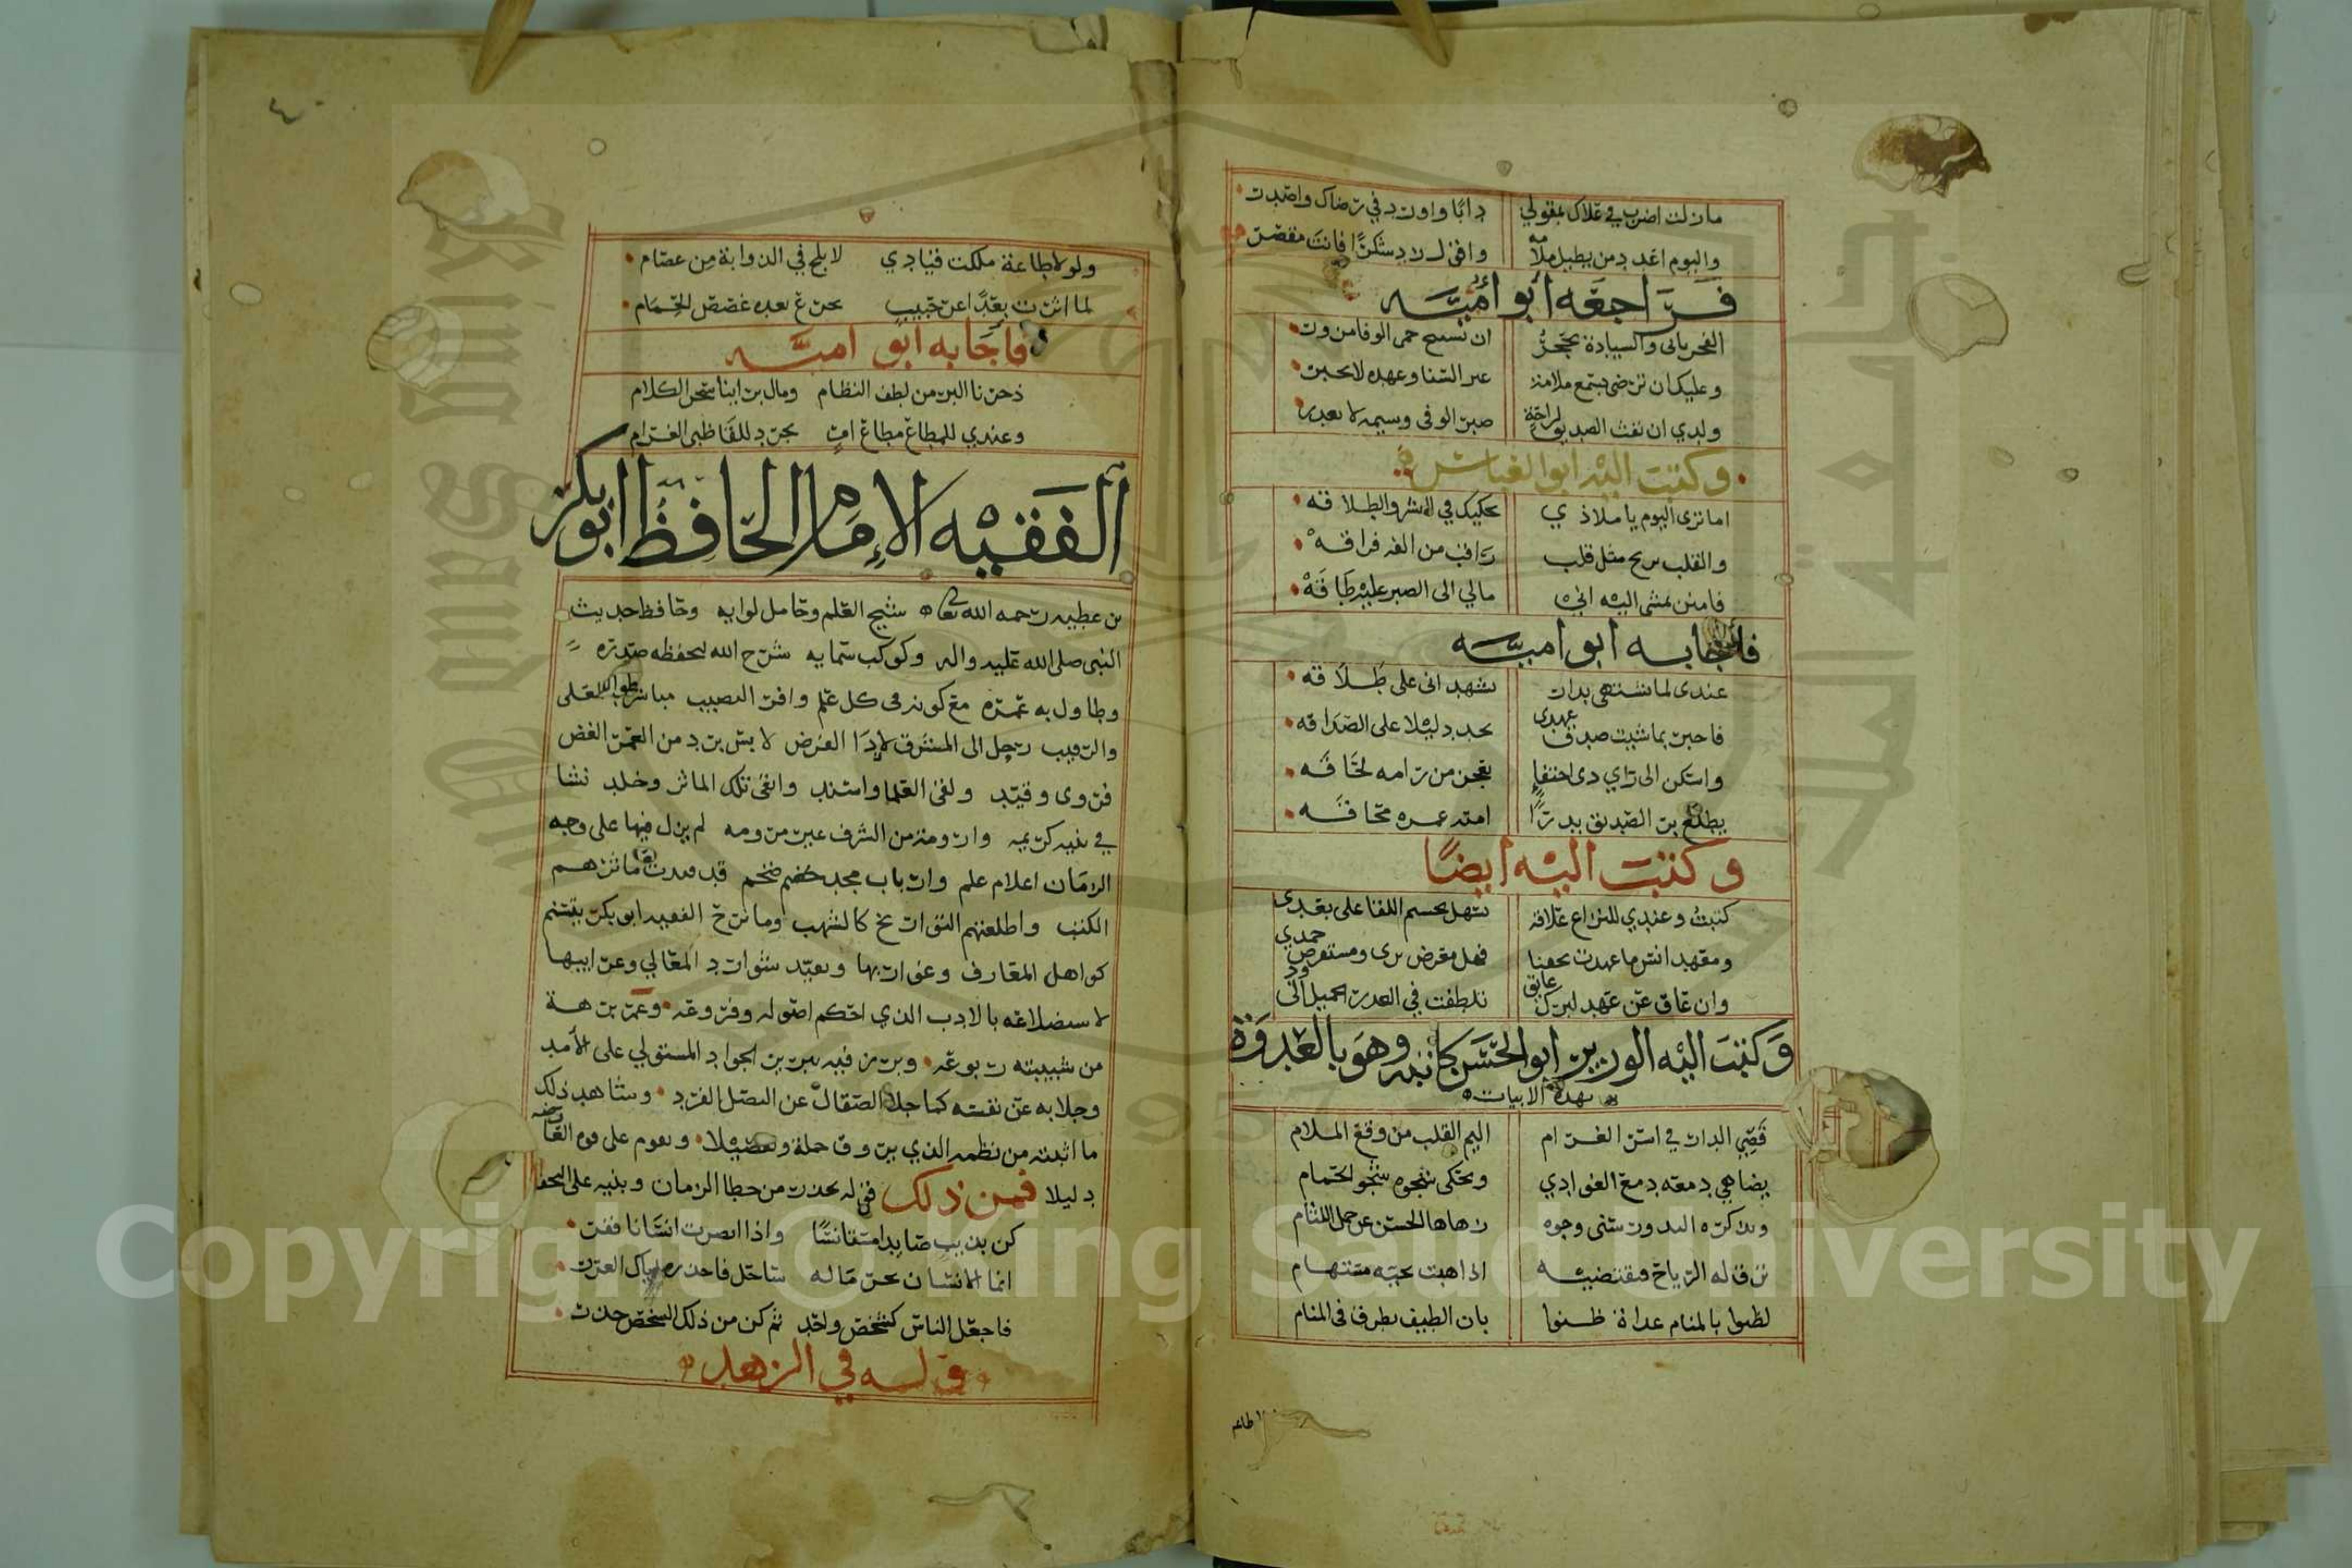 ما زلت اضرب في علاك بمقولي دابا واورد في رضاك واصدر
واليوم اعذر من يطيل ملامه واقول زد شكرا فانت مقصر
فراجعه ابو اميه
الفخر يابى والسيادة تحجر ان تستبيح حمى الوفا
وعليك ان ترضى بسمع ملامة عين السنا وعهده لا يخفر
ولدي ان نفث الصديق لراحة صبر الوفي وشيمة لا تغدر
وكتبت اليه ابو العباس
اما ترى اليوم يا ملاذي يحكيك في البشر والطلاقه
والقلب يريح مثل قلب راقب من الفه فراقه
فامنن بمشي اليه اني مالي الى الصبر عليه طاقه
فاجابه ابو اميه
عندي لما تشتهي بدار تشهد اني على طلاقه
فاخبر بما شيت صدق عهدي تجد دليلا على الصداقه
واسكن الى راي ذي احتفا يعجز من رامه لحاقه
يطلع بر الصديق بدرا امنه عمره محاقه
وكتبت اليه ايضا
كتبت وعندي للنزاع علاقة تسهل تجسيم اللقا على بعدي
ومقعد انس ما عهدت بحفنا فهل مقرض برى ومستقرض حمدي
وان عاق عن عهد لبرك عايق تلطفت في العذر الجميل الى ود
وكتبت اليه الوزير ابو الحسن كاتبه وهو بالعدوة
بهذه الابيات
قصي الدار في اسر الغرام اليم القلب من وقع الملام
يضاهي دمعه دمع الغوادي ويحكي شجوه شجو الحمام
وتذكره البدور سنى وجوه زهاها الحسن عن حمل اللثام
تزف له الرياح فتقتضيه اذا هبت تحية مستهام
لظنوا بالمنام غداة ظنوا بان الطيف يطرق في المنام
٤٠
ولولا طاعة ملكت قيادي لابلج في الذوابة من عصام
لما اثرت بعدا عن حبيب يجرع بعده غصص الحمام
فاجابه ابو اميه
ذخرنا البر من لطف النظام ومال بر ابنا سحر الكلام
وعندي للمطاع مطاع امر يجرد للقا ظبى الغرام
الفقيه الامام الحافظ ابو بكر
بن عطيه رحمه الله تعالى شيخ العلم وحامل لوايه وحافظ حديث
النبي صلى الله عليه واله وكوكب سمايه شرح الله لحفظه صدره
وطاول به عمره مع كونه في كل علم وافر النصيب مباشر بالمعلى
والرقيب رحل الى المشرق لادا الفرض لا بس برد من العمر الغض
فروى وقيد ولقي العلما واسند وابقى تلك الماثر وخلد نشا
في بنيه كريمه وارومة من الشرف غير مرومه لم يزل فيها على وجه
الزمان اعلام علم وارباب مجد ضخم قد قيدت ماثرهم
الكتب واطلعتهم التواريخ كالشهب وما برح الفقيه ابو بكر يتسنم
كواهل المعارف وغواربها ويقيد شوارد المعالي وغرايبها
لاستضلاعه بالادب الذي احكم اصوله وفروعه وعمر برهة
من شبيبته ربوعه وبرز فيه تبريز الجواد المستولي على الامد
وجلا به عن نفسه كما جلا الصقال عن النصل الفرد وشاهد ذلك
ما اثبته من نظمه الذي يروق جملة وتفصيلا ويقوم على قوة العارضة
دليلا فمن ذلك قوله يحذر من خطا الزمان وينبه على التحفظ
كن بذيب صايد مستانسا واذا ابصرت انسانا ففر
انما الانسان بحر ما له ساحل فاحذره اياك الغرر
فاجعل الناس كشخص واحد ثم كن من ذلك الشخص حذر
وله في الزهد
Copyright © King Saud University